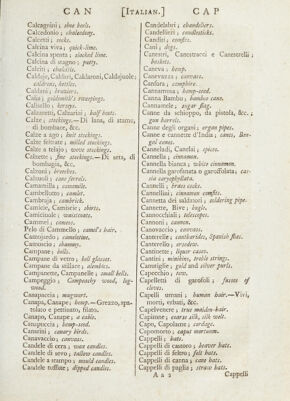 CAN [ITALIAN.] CAP
Calcagnini, shoe heels.
Calcedonio, chalcedony.
Calcetti; socks.
Calcina viva; quick-lime.
Calcina spenta; slacked lime.
Calcina di stagno; putty.
Calciti; chalcitis.
Caldaje, Caldari, Caldaroni, Caldajuole;
caldrons, kettles.
Caldani; braziers.
Calisello; herops.
Calzaretti, Calzarini; half boots.
Calze; stockings.—Di lana, di stame,
di bombace, &c.
Calze a ago; knit stockings.
Calze feltrate; milled stockings.
Calze a telajo; wove stockings.
Calzette; fine stockings.—Di seta, di
bombagia, &c.
Calzoni; breeches.
Calzuoli; cane ferrals.
Camamilla; camomile.
Cambellotto; camlet.
Cambraja; cambrick.
Camicie, Camiscie; shirts.
Camiciuole; waistcoats.
Cammei; cameos.
Pelo di Cammello; camel's hair.
Camojardo;
Camoscio; shammy.
Campane; bells.
Campane di vetro; bell glasses.
Campane da stillare; alembics.
Campanette, Campanelle; small bells.
Campeggio; Campeachy wood, log-
wood.
Canapaccia; mugwort.
Canapa, Canape; hemp.—Grezzo, spa-
tolato e pettinato, filato.
Canapo, Canape; a cable.
Canapuccia; hemp-seed.
Canarini; canary birds.
Canavaccio; canvass.
Candele di cera; wax candles.
Candele di sevo; tallow candles.
Candele a stampo; mould candles.
Candele tuffate; dipped candles.
Candelabri; chandeliers.
Candellieri; candlesticks.
Canditi; comfits.
Cani; dogs.
Canestri, Canestracci e Canestrelli;
baskets.
Caneva; hemp.
Canevazza; canvass.
Canfora; camphire.
Cannamosa; hemp-seed.
Canna Bambu; bamboo cane.
Cannamele; sugar flag.
Canne da schioppo, da pistola, &c.;
gun barrels.
Canne degli organi; organ pipes.
Canne e cannette d'India; canes, Ben-
gal canes.
Cannelladi, Canelai; spices.
Cannella; cinnamon.
Cannella bianca; white cinnamon.
Cannella garofanata o garoffolata; cas-
sia caryophyllata.
Cannelli; brass cocks.
Cannellini; cinnamon comfits.
Cannetta dei saldatori; soldering pipe.
Cannette, Bive; bugles.
Cannocchiali; telescopes.
Cannoni; cannon.
Canovaccio; canvass.
Canterelle; cantharides, Spanish flies.
Canterello; orsedew.
Cantinette; liquor cases.
Cantini; minikins, treble strings.
Cantiglie; gold and silver purls.
Capecchio; tow.
Capelletti di garofoli; fusses of
cloves.
Capelli umani; human hair.—Vivi,
morti, erbati, &c.
Capelvenere; true maiden-hair.
Capitone; coarse silk, silk wolt.
Capo, Capolame; cordage.
Capomorto; caput mortuum.
Cappelli; hats.
Cappelli di castoro; beaver hats.
Cappelli di feltro; felt hats.
Cappelli di canna; cane hats.
Cappelli di paglia; straw hats.
A a 2 Cappelli